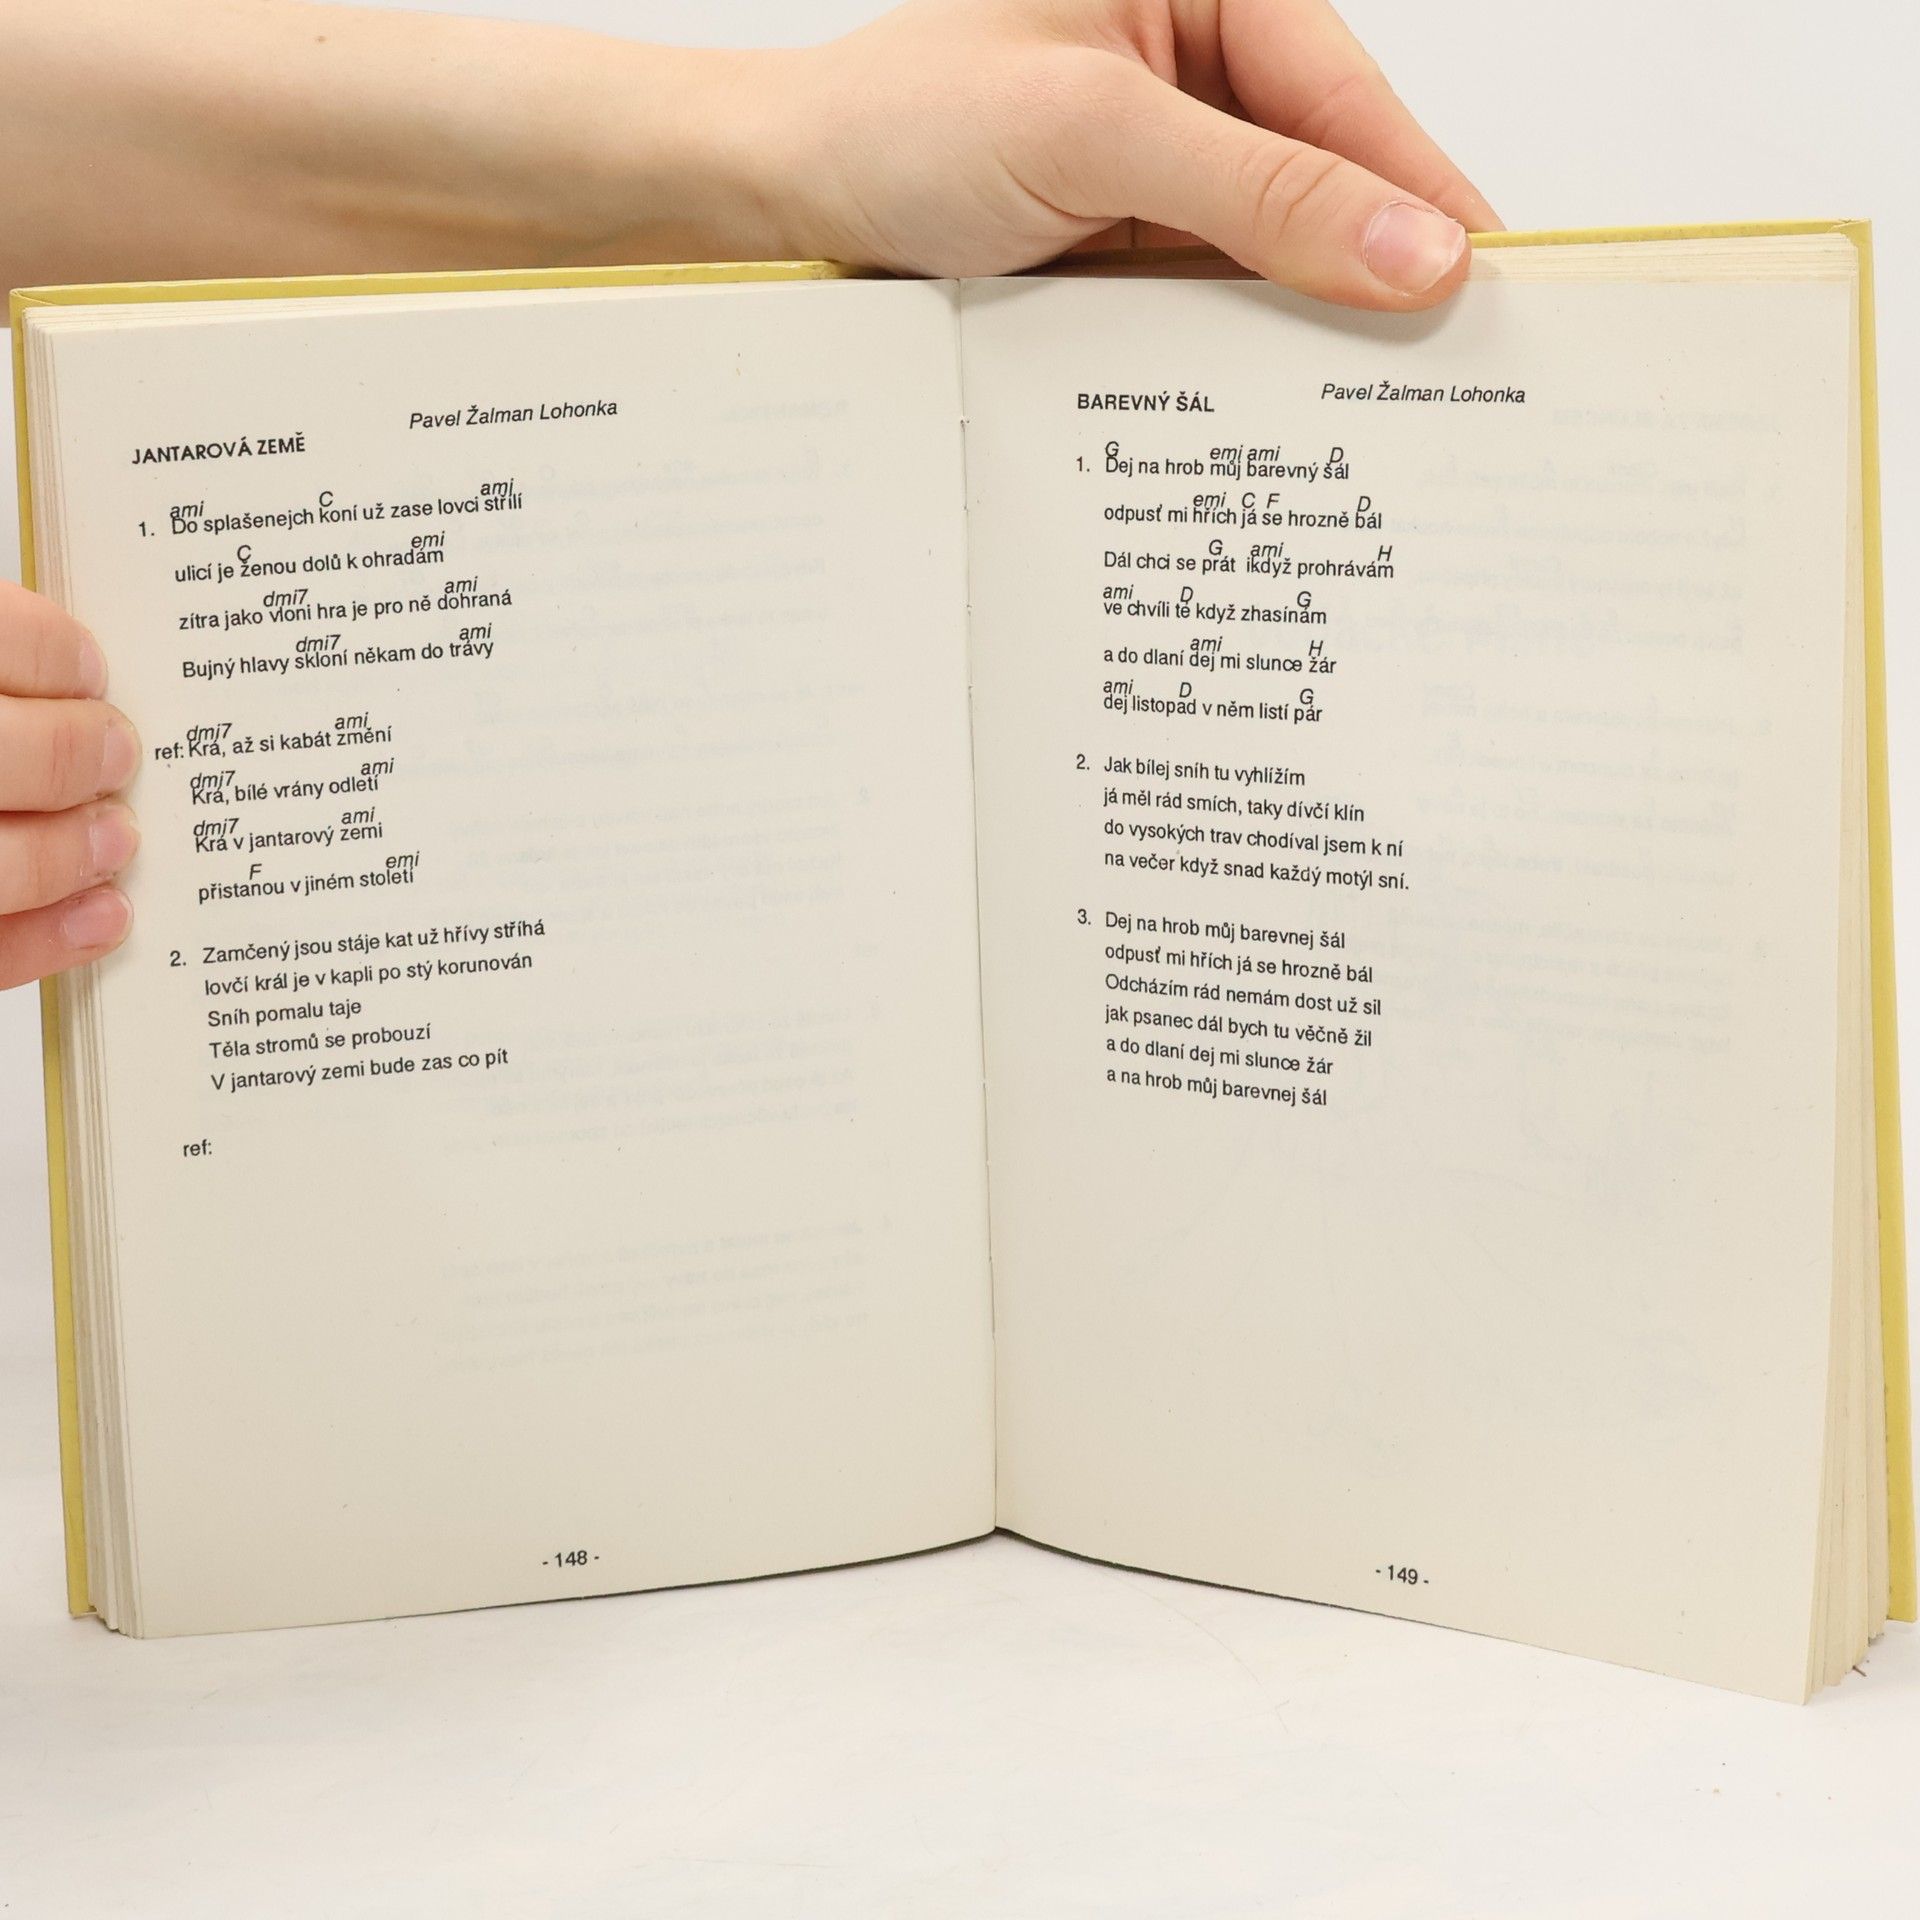 Pavel Žalman Lohonka
JANTAROVÁ ZEMĚ
ami C ami
1. Do splašenejch koní už zase lovci střílí
C emi
ulicí je ženou dolů k ohradám
dmi7 ami
zítra jako vloni hra je pro ně dohraná
dmi7 ami
Bujný hlavy skloní někam do trávy
dmi7 ami
ref: Krá, až si kabát změní
dmi7 ami
Krá, bílé vrány odletí
dmi7 ami
Krá v jantarový zemi
F emi
přistanou v jiném století
2. Zamčený jsou stáje kat už hřívy stříhá
lovčí král je v kapli po stý korunován
Sníh pomalu taje
Těla stromů se probouzí
V jantarový zemi bude zas co pít
ref:
- 148 -
Pavel Žalman Lohonka
BAREVNÝ ŠÁL
G emi ami D
1. Dej na hrob můj barevný šál
emi C F D
odpusť mi hřích já se hrozně bál
G ami H
Dál chci se prát ikdyž prohrávám
ami D G
ve chvíli té když zhasínám
ami H
a do dlaní dej mi slunce žár
ami D G
dej listopad v něm listí pár
2. Jak bílej sníh tu vyhlížím
já měl rád smích, taky dívčí klín
do vysokých trav chodíval jsem k ní
na večer když snad každý motýl sní.
3. Dej na hrob můj barevnej šál
odpusť mi hřích já se hrozně bál
Odcházím rád nemám dost už sil
jak psanec dál bych tu věčně žil
a do dlaní dej mi slunce žár
a na hrob můj barevnej šál
- 149 -